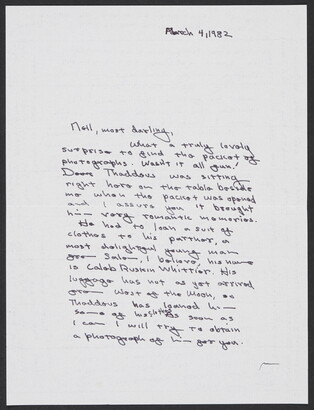 March 4, 1982
Nell, most darling,
What a truly lovely
surprise to find the packet of
photographs. Wasn't it all fun!
Dear Thaddeus was sitting
right here on the table beside
me when the packet was opened
and I assure you it brought
him very romantic memories.
He had to loan a suit of
clothes to his partner, a
most delightful young man
from Salem, I believe, his name
is Caleb Ruskin Whittier. His
luggage has not as yet arrived
from West of the Moon, so
Thaddeus has loaned him
some of his things. As soon as
I can I will try to obtain
a photograph of him for you.